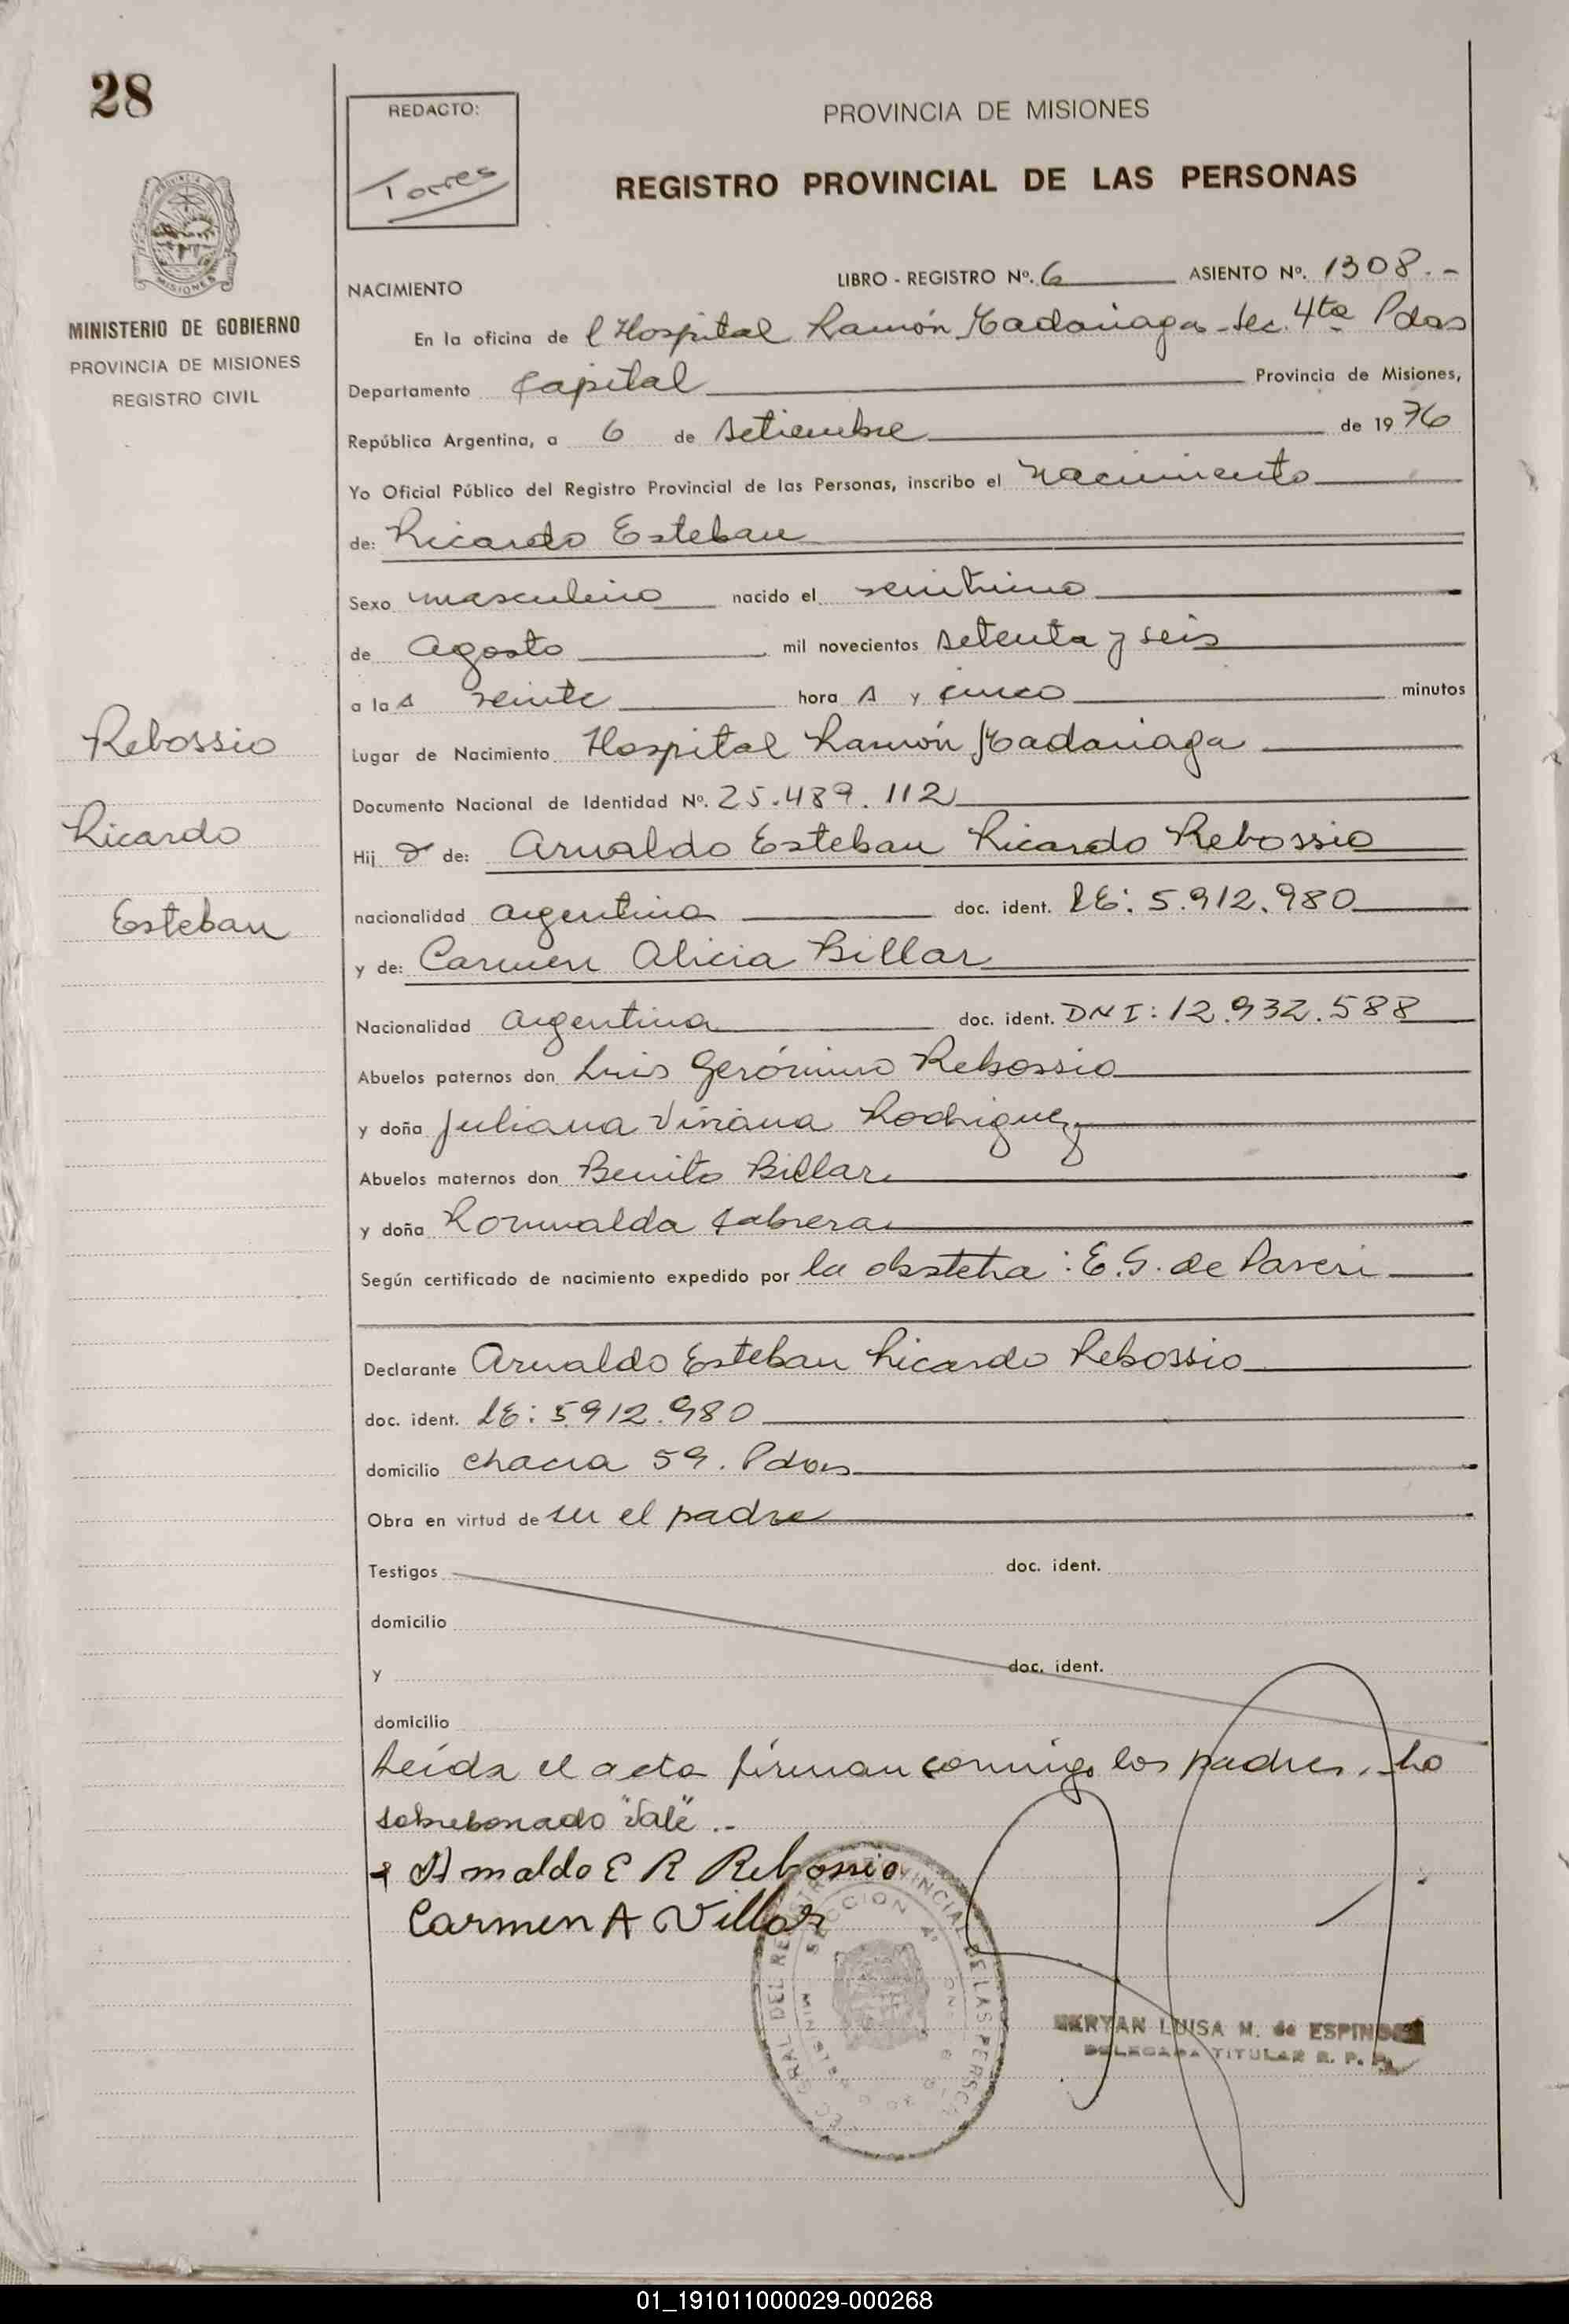 28
REDACTO:
Torres
PROVINCIA DE MISIONES
REGISTRO PROVINCIAL DE LAS PERSONAS
MINISTERIO DE GOBIERNO
PROVINCIA DE MISIONES
REGISTRO CIVIL
NACIMIENTO
LIBRO - REGISTRO Nº. 6 ASIENTO Nº. 1308.-
En la oficina de l Hospital Ramón Madariaga - Sec. 4ta Pdas
Departamento Capital Provincia de Misiones,
República Argentina, a 6 de setiembre de 1976
Yo Oficial Público del Registro Provincial de las Personas, inscribo el nacimiento
de: Ricardo Esteban
Sexo masculino nacido el
de Agosto mil novecientos setenta y seis
a las veinte horas y cinco minutos
Rebossio
Ricardo
Esteban
Lugar de Nacimiento Hospital Ramón Madariaga
Documento Nacional de Identidad Nº. 25.489.112
Hijo de: Arnaldo Esteban Ricardo Rebossio
nacionalidad argentina doc. ident. LE: 5.912.980
y de: Carmen Alicia Billar
Nacionalidad argentina doc. ident. DNI: 12.932.588
Abuelos paternos don Luis Gerónimo Rebossio
y doña Juliana Viviana Rodriguez
Abuelos maternos don Benito Billar
y doña Romualda Cabrera
Según certificado de nacimiento expedido por la obstetra: E.G. de
Declarante Arnaldo Esteban Ricardo Rebossio
doc. ident. LE: 5912.980
domicilio chacra 59. Pdas
Obra en virtud de ser el padre
Testigos doc. ident.
domicilio
y doc. ident.
domicilio
Leída el acta firman conmigo los padres.
sobreborrado "Vale".-
Arnaldo E R Rebossio
Carmen A Villar
SECCION 4ª
MERYAN LUISA M. de ESPINOSA
DELEGADA TITULAR R. P. P.
01_191011000029-000268